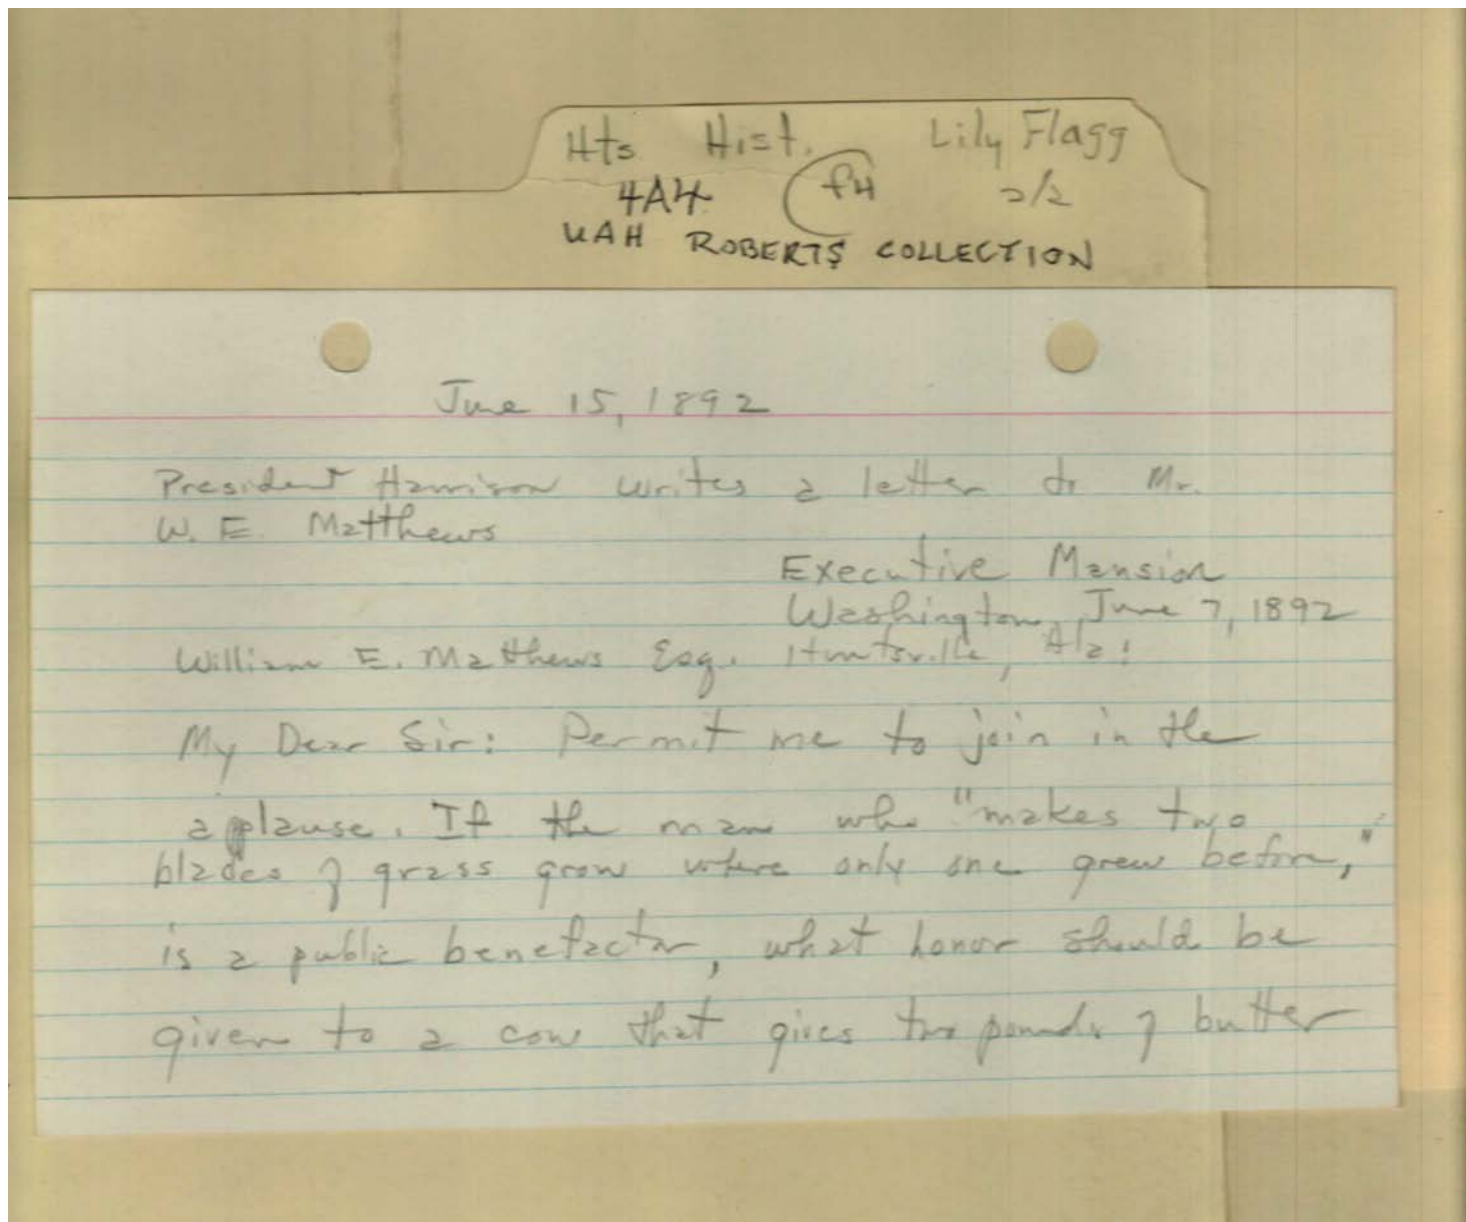 Hts Hist. Lily Flagg
4A4 f4 2/2
UAH ROBERTS COLLECTION
June 15, 1892
President Harrison writes a letter to Mr.
W. E. Matthews
Executive Mansion
Washington, June 7, 1892
William E. Matthews Esq. Huntsville, Ala:
My Dear Sir: Permit me to join in the
aplause. If the man who "makes two
blades of grass grow where only one grew before,"
is a public benefactor, what honor should be
given to a cow that gives two pounds of butter